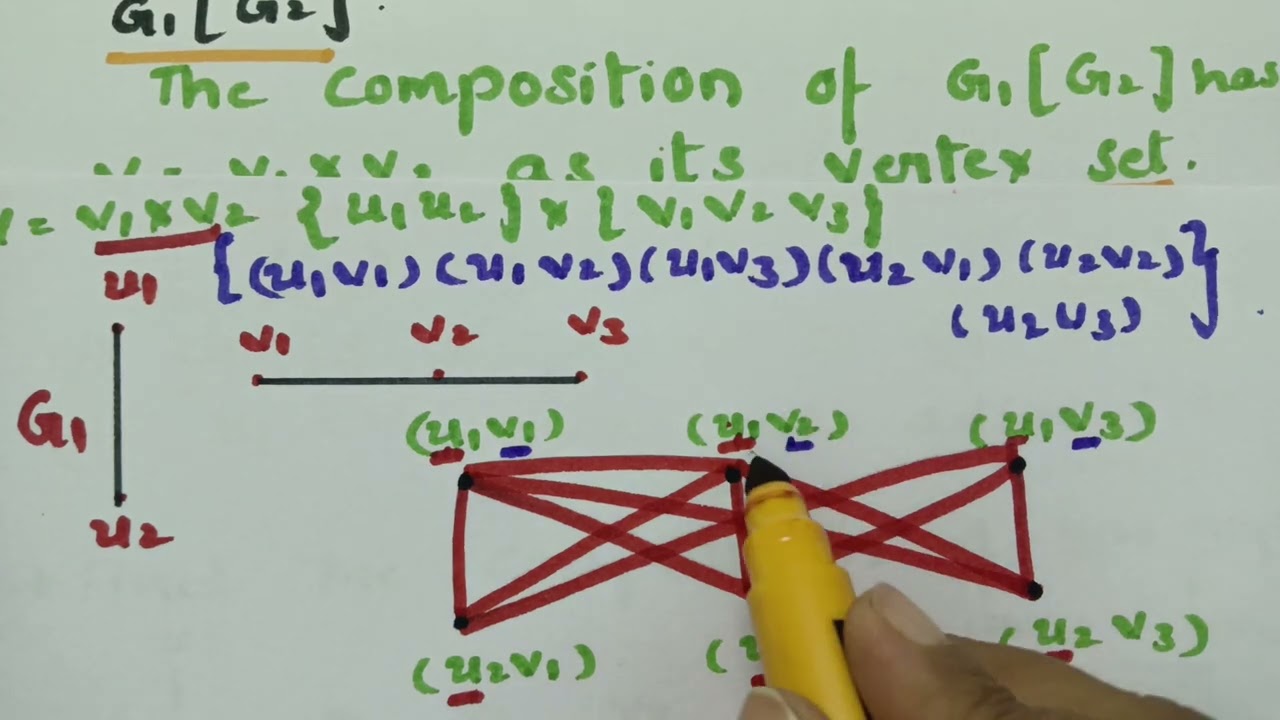 G1[G2].
The composition of G1[G2] has
V = V1×V2 as its vertex set.
V = V1×V2 {u1 u2} × {V1 V2 V3}
{(u1V1) (u1V2) (u1V3) (u2V1) (u2V2)
(u2V3)}
u1
V1 V2 V3
G1
u2
(u1V1) (u1V2) (u1V3)
(u2V1) (u2V3)